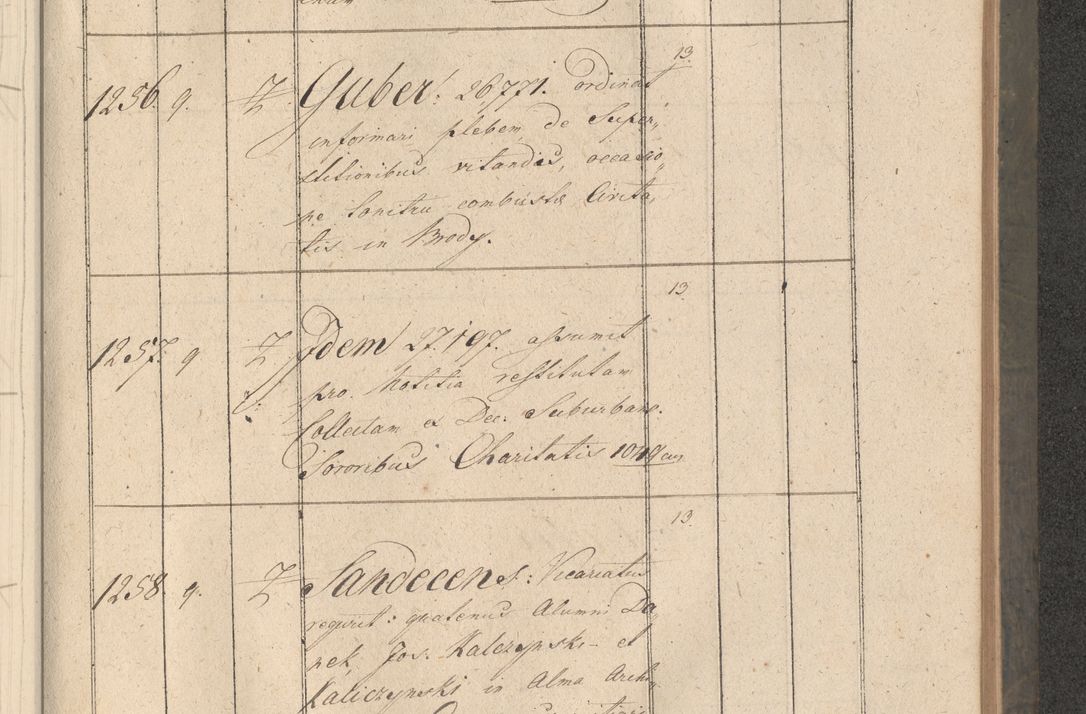 13.
1256. 9. Z Guber: 26,771. ordinat
informari plebem de Super„
stitionibus vitandis, occasio„
ne tonitru combustæ Civita„
tis in Brody.
13.
1257. 9 Z Idem 27,197. assumit
pro notitia restitutam
Collectam ex Dec. Suburbano.
Sororibus Charitatis 1049
13.
1258. 9. Z Sandecens: Vicariatus
requirit: quatenus Alumni Da„
nek, Jos. Kalczynski et
Kaliczynski in Alma Archi„